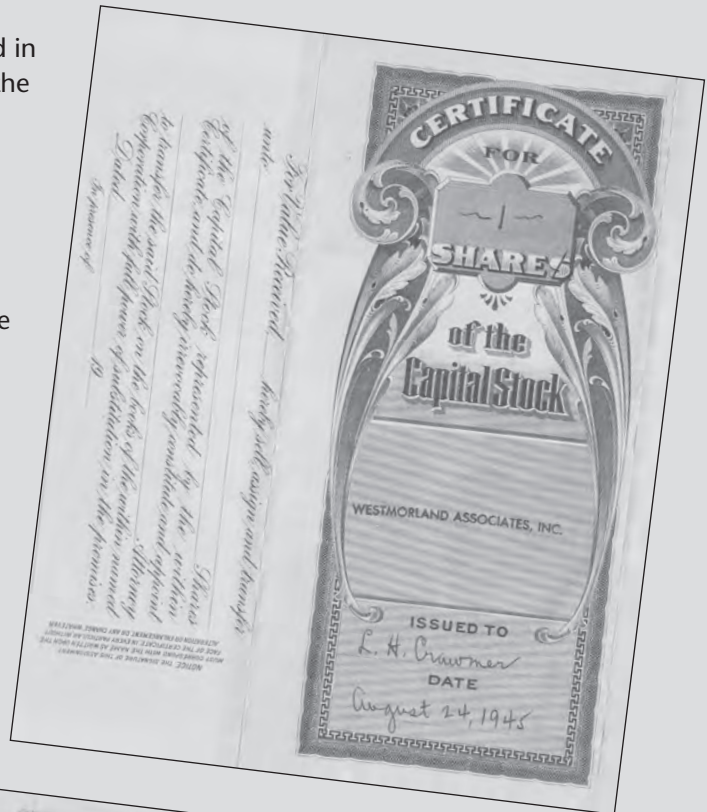 d in
the
e
For Value Received hereby sell, assign and transfer
unto
Shares
of the Capital Stock represented by the within
Certificate and do hereby irrevocably constitute and appoint
Attorney
to transfer the said Stock on the books of the within named
Corporation with full power of substitution in the premises.
Dated 19
In presence of
NOTICE. THE SIGNATURE OF THIS ASSIGNMENT
MUST CORRESPOND WITH THE NAME AS WRITTEN UPON THE
FACE OF THE CERTIFICATE IN EVERY PARTICULAR WITHOUT
ALTERATION OR ENLARGEMENT OR ANY CHANGE WHATEVER
CERTIFICATE
FOR
1
SHARES
of the
Capital Stock
WESTMORLAND ASSOCIATES, INC.
ISSUED TO
L. H. Crawmer
DATE
August 24, 1945